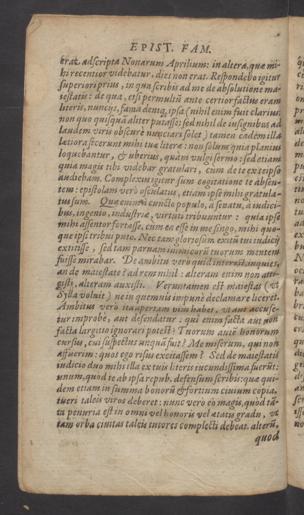 EPIST. FAM.
erat adscripta Nonarum Aprilium: in altera, quæ mi-
hi recentior videbatur, dies non erat. Respondebo igitur
superiori prius, in qua scribis ad me de absolutione ma-
iestatis: de qua, etsi permultũ ante certior factus eram
literis, nuncijs, fama deniq; ipsa (nihil enim fuit clarius:
non quo quisquã aliter putasset: sed nihil de insignibus ad
laudem viris obscurè nunciari solet) tamen eadẽ illa
lætiora fecerunt mihi tuæ literæ: non solum quia planius
loquebantur, & uberius, quàm vulgi sermo: sed etiam
quia magis tibi videbar gratulari, cum de te ex te ipso
audiebam. Complexus igitur sum cogitatione te absen-
tem: epistolam verò osculatus, etiam ipse mihi gratula-
tus sum. Quæ enim à cuncto populo, à senatu, à iudici-
bus, ingenio, industriæ, virtuti tribuuntur: quia ipse
mihi assentor fortasse, cum ea esse in me fingo, mihi quo-
que ipsi tribui puto. Nec tam gloriosum exitũ tui iudicij
extitisse, sed tam prauam inimicorũ tuorum mentem
fuisse mirabar. De ambitu verò quid interest, inquies,
an de maiestate? ad rem nihil: alteram enim non atti-
gisti, alteram auxisti. Verumtamen est maiestas (vt
Sylla voluit) ne in quemuis impunè declamare liceret.
Ambitus verò ita apertam vim habet, vt aut accuse-
tur improbè, aut defendatur: qui enim facta aut non
facta largitio ignorari potest? Tuorum autẽ honorum
cursus, cui suspectus unquã fuit? Me miserum, qui non
affuerim: quos ego risus excitassem? Sed de maiestatis
iudicio duo mihi illa ex tuis literis iucundissima fuerũt:
unum, quod te ab ipsa repub. defensum scribis: quæ qui-
dem etiam in summa bonorũ & fortium ciuium copia,
tueri tales viros deberet: nunc verò eò magis, quòd tã-
ta penuria est in omni vel honoris vel ætatis gradu, vt
tam orba ciuitas tales tutores complecti debeat. alterũ,
quod